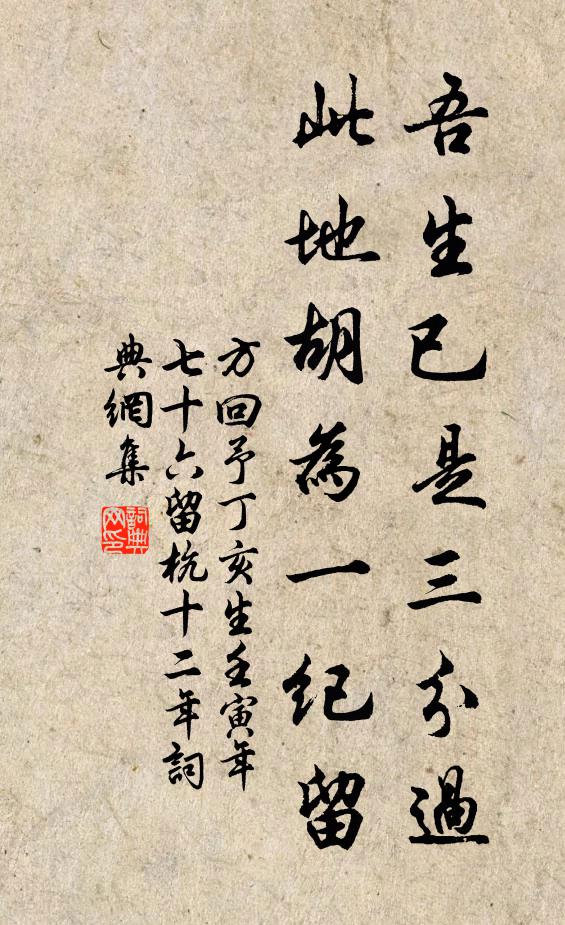 吾生已是三分過
此地胡為一紀留
方回予丁亥生壬寅年
七十六留杭十二年詞
典網集
詞典
网印